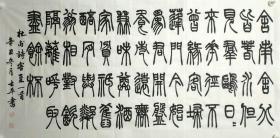 舍南舍北
皆春水但
見群鷗日日
來花徑不
曾緣客掃
蓬門今始
為君開盤
飧市遠無
兼味樽酒
家貧只舊
醅肯與鄰
翁相對飲
隔籬呼取
盡餘杯
杜甫詩客至一首
辛丑冬月 書